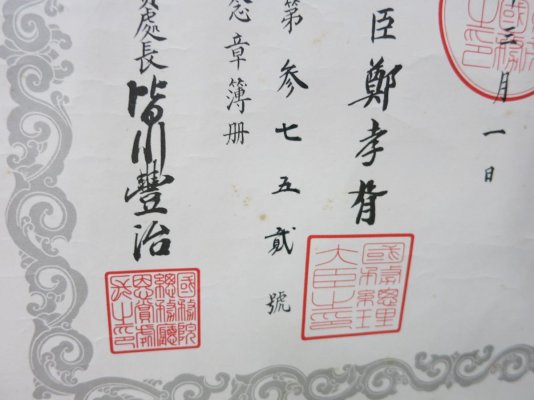 三月一日
臣 鄭孝胥
國務總理
大臣之印
第參七五貳號
念章簿册
處長 皆川豐治
國務院
總務廳
恩賞處
長之印